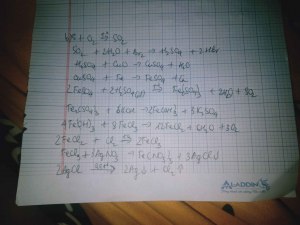 b) S + O₂ → SO₂
SO₂ + 2H₂O + Br₂ → H₂SO₄ + 2HBr
H₂SO₄ + CuO → CuSO₄ + H₂O
CuSO₄ + Fe → FeSO₄ + Cu
2FeSO₄ + 2H₂SO₄ → Fe₂(SO₄)₃ + 2H₂O + SO₂
Fe₂(SO₄)₃ + 6KOH → 2Fe(OH)₃ + 3K₂SO₄
4Fe(OH)₃ + 8FeCl₃ → 12FeCl₂ + 6H₂O + 3O₂
2FeCl₂ + Cl₂ → 2FeCl₃
FeCl₃ + 3AgNO₃ → Fe(NO₃)₃ + 3AgCl↓
2AgCl → 2Ag↓ + Cl₂↑
ALADDIN